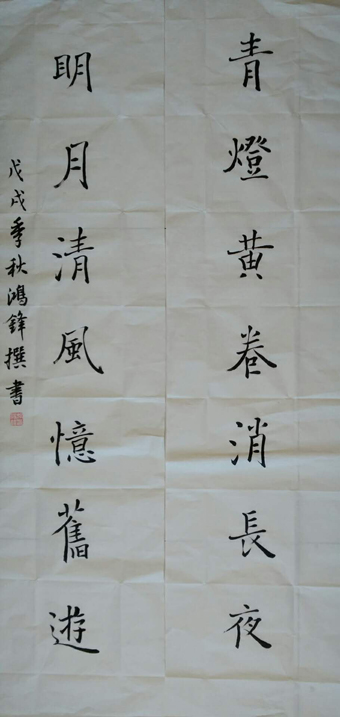 青燈黄卷消長夜
明月清風憶舊遊
戊戌季秋鴻鋒撰書